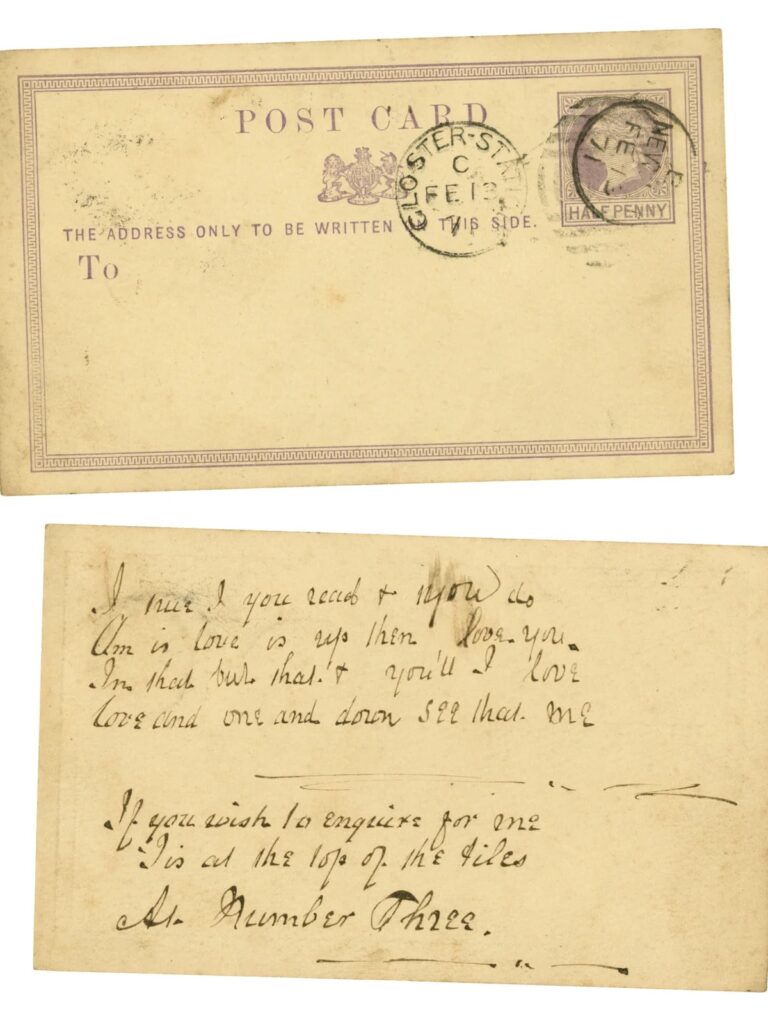 POST CARD
GLOSTER-STA
C
FE 13
71
THE ADDRESS ONLY TO BE WRITTEN THIS SIDE.
To
B
FE 13
71
HALFPENNY
I true I you read & if you do
Am is love is up then love you.
In that but that & you'll I love
love and one and down see that me
If you wish to enquire for me
Tis at the top of the tiles
At Number Three.